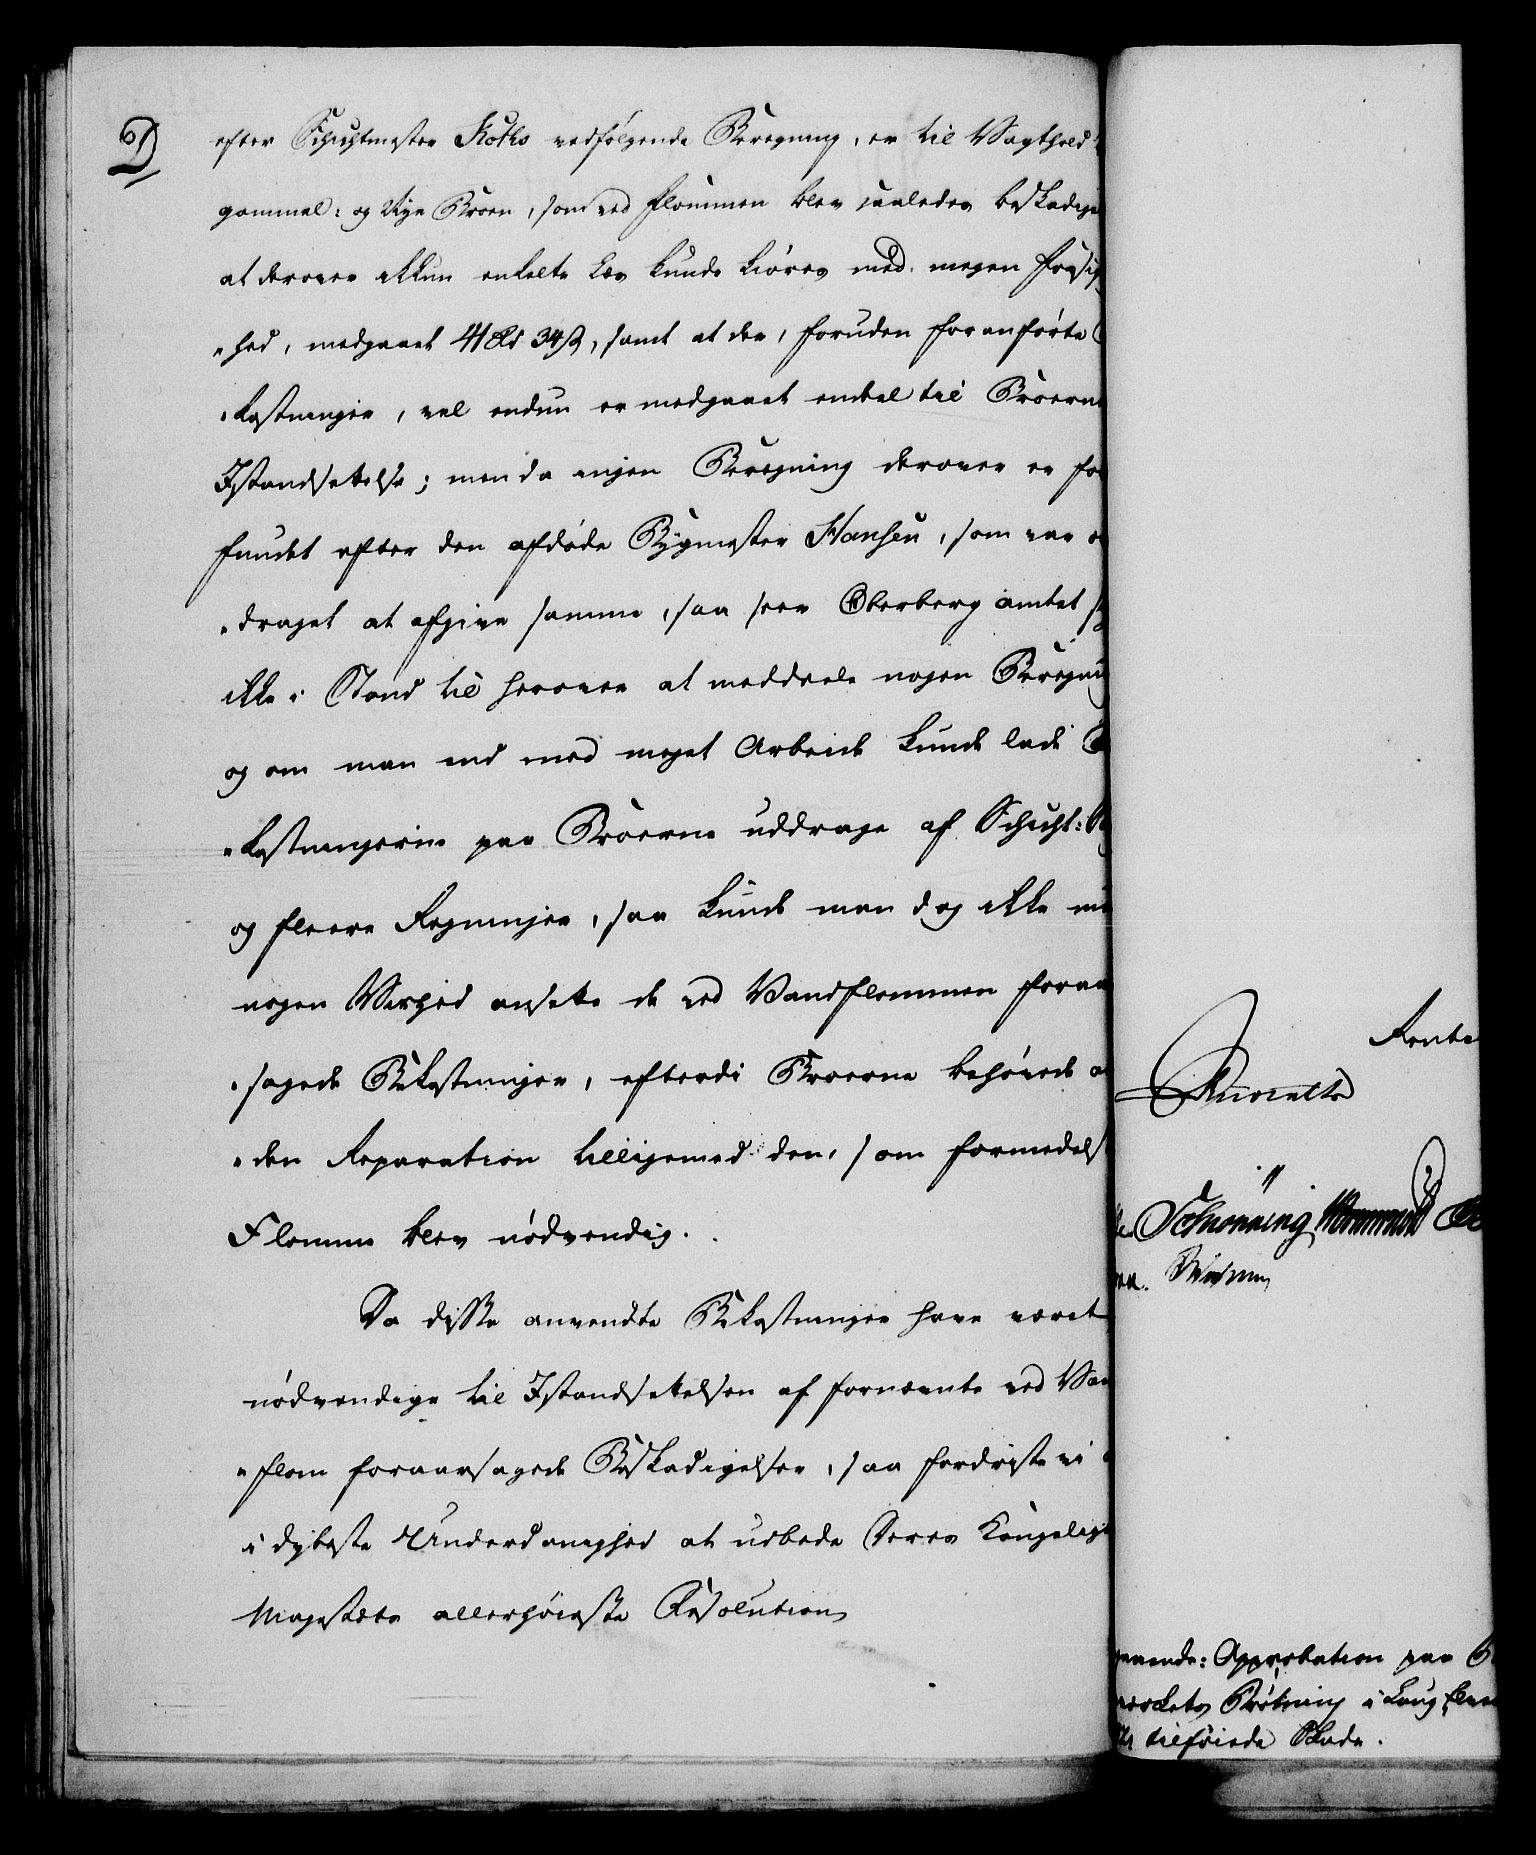 D
efter Schichtmester Koths vedfølgende Beregning, er til Vagthold
gammel: og Nye Broen, som ved Flommen blev saaledes beskadige
at derover ikkun enkelte Læs kunde kiøres med megen forsig
"hed, medgaaet 41 Rd 34 ß, samt at der, foruden foranførte
"kostninger, vel endnu er medgaaet endeel til Broerne
Istandsættelse; men da ingen Beregning derover er fore
fundet efter den afdøde Bygmester Hansen, som var
"draget at afgive samme, saa seer Oberbergamtet
ikke i Stand til herover at meddeele nogen Beregning
og om man end med meget Arbeide kunde lade
"kostningerne paa Broerne uddrage af Schicht:
og fleere Regninger, saa kunde man dog ikke
nogen Vished ansætte de ved Vandflommen foraar
"sagede Bekostninger, efterdi Broerne behøvede
"den Reparation tilligemed den, som formedelst
Flommen blev nødvendig.
Da disse anvendte Bekostninger have været
nødvendige til Istandsættelsen af fornævnte ved Van
"flom foraarsagede Beskadigelser, saa fordriste vi
i dybeste Underdanighed at udbede Deres Kongelige
Majestæts allerhøieste Resolution
Rente
Schønning
Wormskiold
gaaende: Approbation paa
værkets Drivning i Kongsberg
tilføiede Skade.